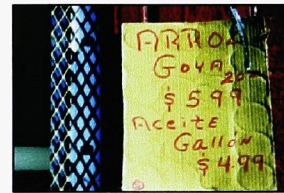 ARROZ
GOYA 20
$ 5 99
ACEITE
Gallon
$ 4.99